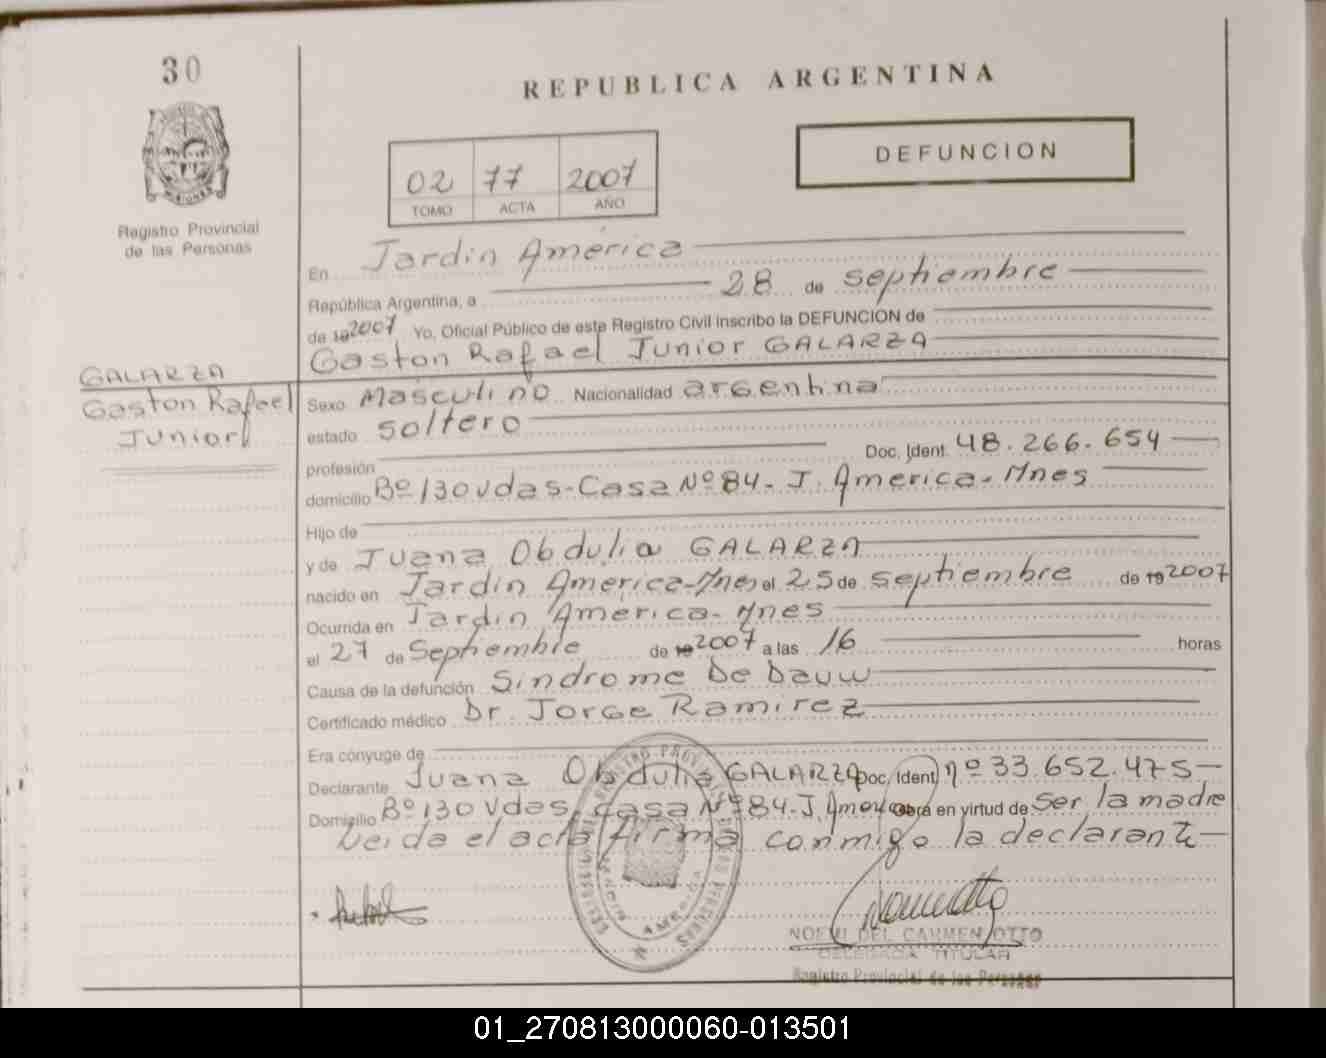 30
REPUBLICA ARGENTINA
DEFUNCION
02 77 2007
TOMO ACTA AÑO
Registro Provincial
de las Personas
En Jardin América
República Argentina, a 28 de septiembre
de 192007 Yo, Oficial Público de este Registro Civil inscribo la DEFUNCION de
Gaston Rafael Junior GALARZA
GALARZA
Gaston Rafael
Junior
Sexo Masculino Nacionalidad argentina
estado soltero
profesión Doc. Ident. 48.266.654
domicilio Bº 130 vdas-Casa Nº 84-J. America-Mnes
Hijo de
y de Juana Obdulia GALARZA
nacido en Jardin America-Mnes el 25 de septiembre de 192007
Ocurrida en Jardin America-Mnes
el 27 de Septiembre de 192007 a las 16 horas
Causa de la defunción Sindrome De
Certificado médico Dr. Jorge Ramirez
Era cónyuge de
Declarante Juana Obdulia GALARZA Doc. Ident. nº 33.652.475
Domicilio Bº 130 Vdas casa Nº 84-J. America Obra en virtud de ser la madre
Leida el acta firma conmigo la declarante
NOEMI DEL CARMEN OTTO
DELEGADA TITULAR
Registro Provincial de las Personas
01_270813000060-013501